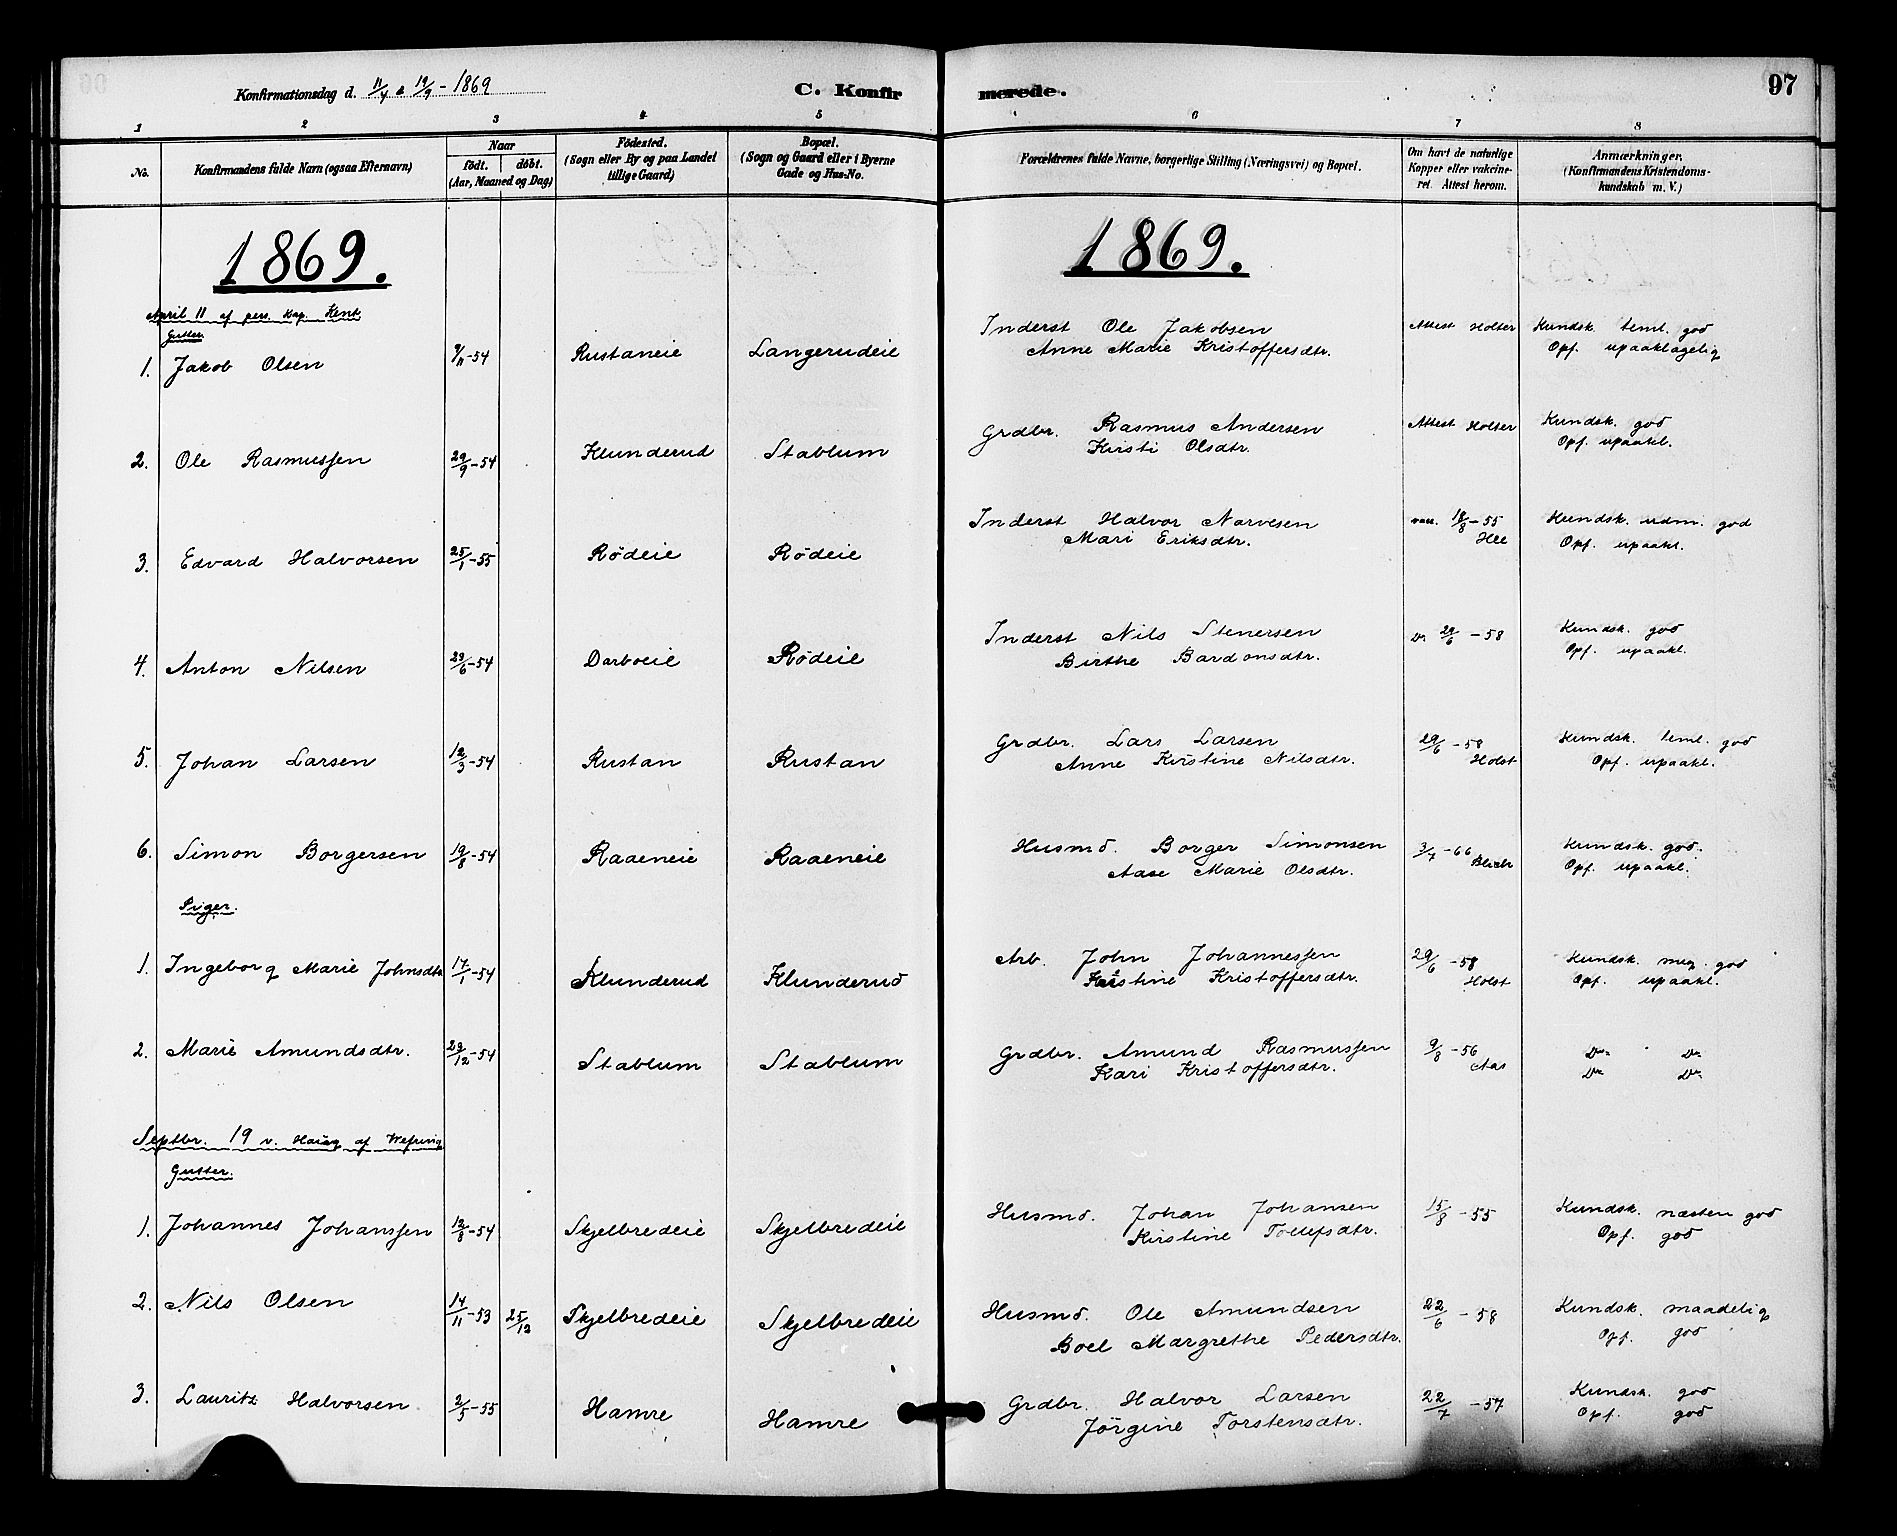 Konfirmationsdag d. 11/4 & 19/9 - 1869
C. Konfirmerede.
97
1 2 3 4 5 6 7 8
No.
Konfirmandens fulde Navn (ogsaa Efternavn)
Naar
født. døbt.
(Aar, Maaned og Dag)
Fødested.
(Sogn eller By og paa Landet
tillige Gaard)
Bopæl.
(Sogn og Gaard eller i Byerne
Gade og Hus-No.
Forældrenes fulde Navne, borgerlige Stilling (Næringsvei) og Bopæl.
Om havt de naturlige
Kopper eller vakcine-
ret. Attest herom.
Anmærkninger.
(Konfirmandens Kristendoms-
kundskab m. V.)
1869. 1869.
April 11 af pers. Kap. Kent
Gutter
1. Jakob Olsen 9/11-54 Rustaneie Langerudeie Inderst Ole Jakobsen Attest Holter Kundsk. teml. god
Anne Marie Kristoffersdtr. Opf. upaaklagelig
2. Ole Rasmussen 29/9-54 Klunderud Stablum Grdbr. Rasmus Andersen Attest Holter Kundsk. god
Kirsti Olsdtr. Opf. upaakl.
3. Edvard Halvorsen 25/1-55 Rödeie Rödeie Inderst Halvor Narvesen vacc. 18/8-55 Kundsk. udm. god
Mari Eriksdtr. Hee Opf. upaakl.
4. Anton Nilsen 23/6-54 Darboeie Rödeie Inderst Nils Stenersen Do 29/6-58 Kundsk. god
Birthe Bardonsdtr. Opf. upaakl.
5. Johan Larsen 12/3-54 Rustan Rustan Grdbr. Lars Larsen 29/6-58 Kundsk. teml. god
Anne Kirstine Nilsdtr. Holst Opf. upaakl.
6. Simon Borgersen 19/8-54 Raaeneie Raaeneie Husmd. Borger Simonsen 3/7-66 Kundsk. god.
Aase Marie Olsdtr. Opf. upaakl.
Piger.
1. Ingeborg Marie Johnsdtr 17/1-54 Klunderud Klunderud Arb. John Johannessen 29/6-58 Kundsk. meg. god
Kirstine Kristoffersdtr. Holst Opf. upaakl.
2. Marie Amundsdtr. 23/12-54 Stablum Stablum Grdbr. Amund Rasmussen 9/8-56 Do Do
Kari Kristoffersdtr. Aas Do Do
Septbr. 19 v. Haug af
Gutter.
1. Johannes Johanssen 12/8-54 Skjelbredeie Skjelbredeie Husmd. Johan Johansen 15/8-55 Kundsk. næsten god
Kirstine Tollefsdtr. Opf. god
2. Nils Olsen 14/11-53 25/12 Skjelbredeie Skjelbredeie Husmd. Ole Amundsen 22/6-58 Kundsk. maadelig
Boel Margrethe Pedersdtr. Opf. god
3. Lauritz Halvorsen 2/5-55 Hamre Hamre Grdbr. Halvor Larsen 22/7-57 Kundsk. god
Jörgine Torstensdtr. Opf. god